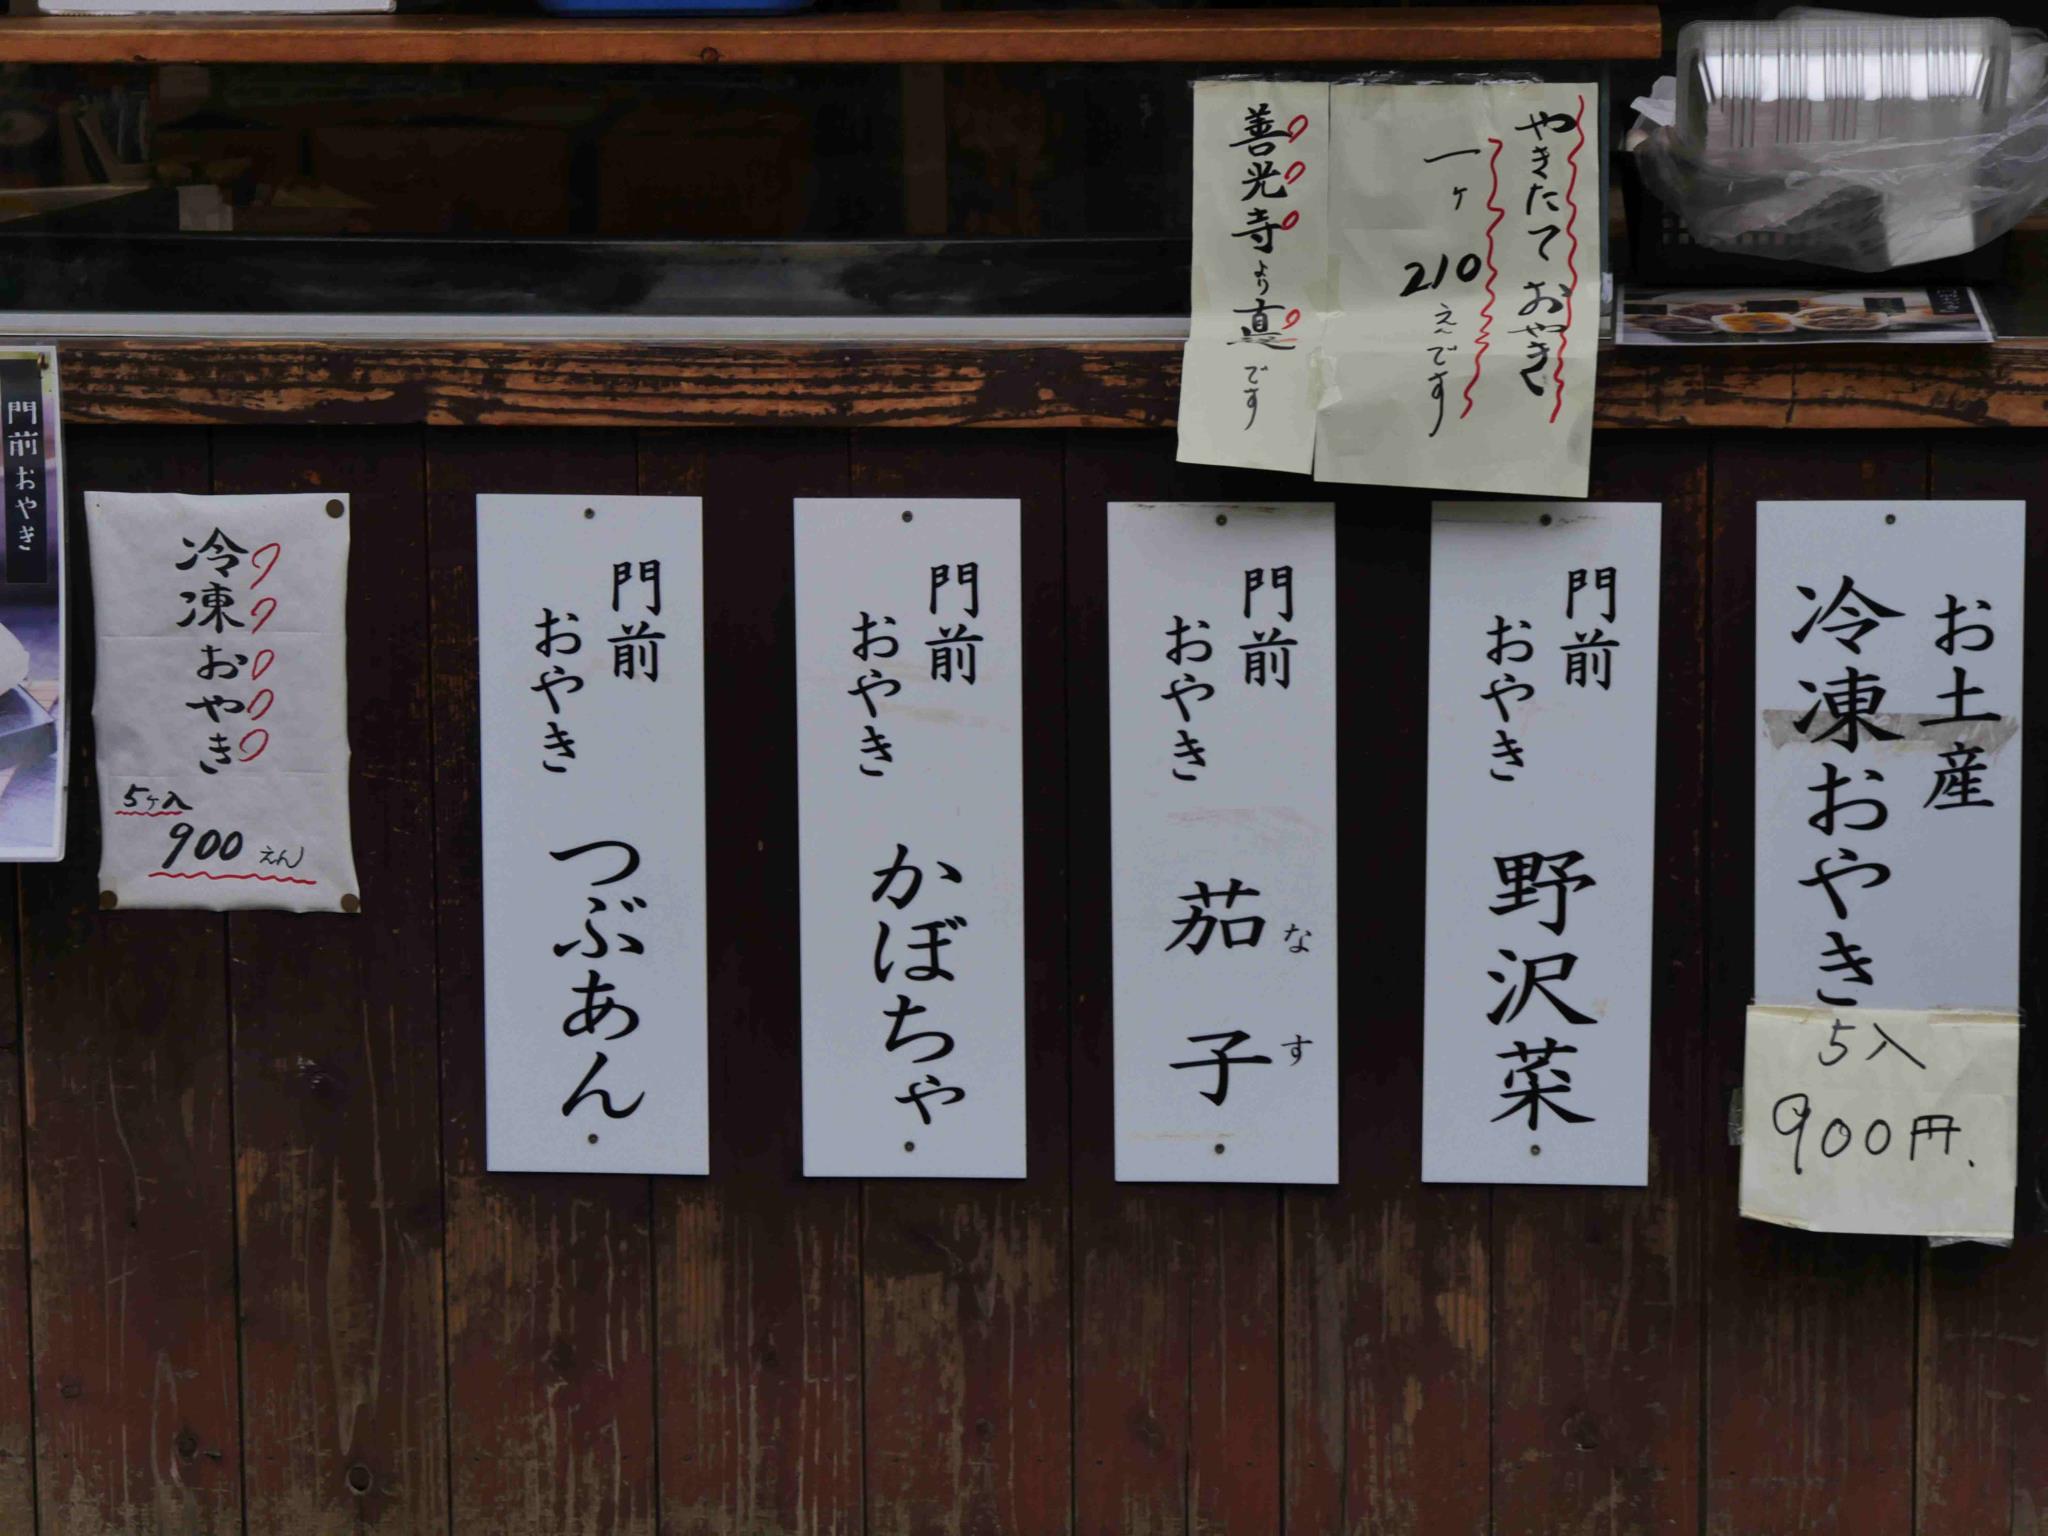 やきたて おやき
一ヶ 210えんです
善光寺より直です
門前おやき
冷凍おやき
5ヶ入
900えん
門前
おやき つぶあん
門前
おやき かぼちゃ
門前
おやき 茄子
なす
門前
おやき 野沢菜
お土産
冷凍おやき
5入
900円、